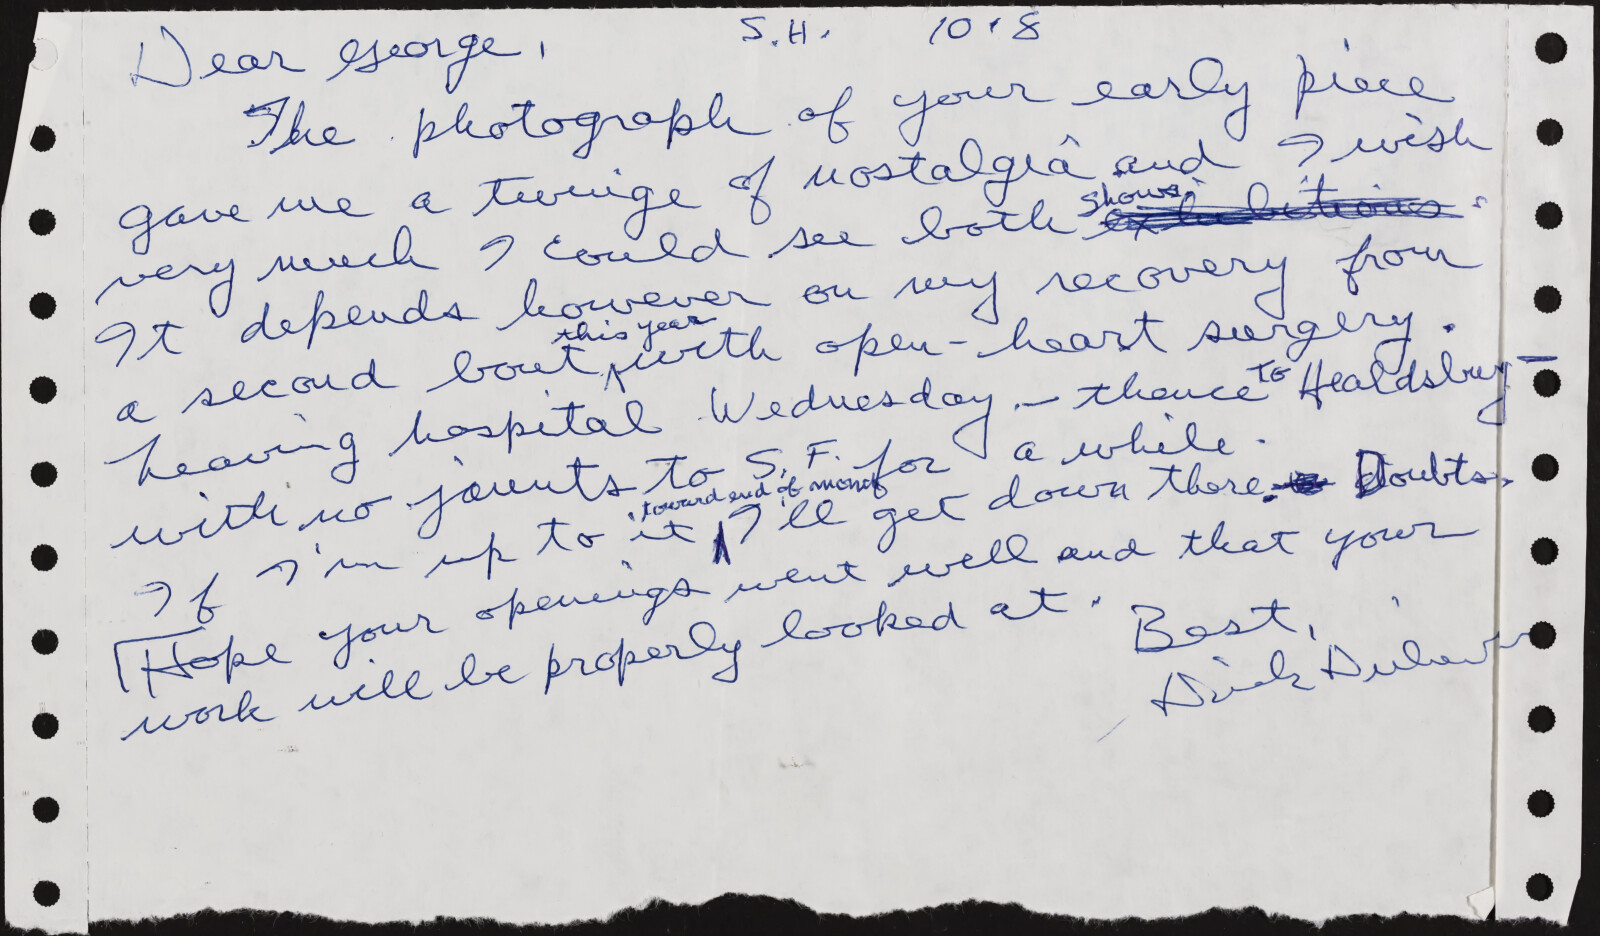 S.H. 10·8
Dear George,
The photograph of your early piece
gave me a twinge of nostalgia and I wish
very much I could see both shows.
It depends however on my recovery from
a second bout this year with open-heart surgery.
Leaving hospital Wednesday – thence to Healdsburg –
with no jaunts to S.F. for a while.
If I'm up to it toward end of month I'll get down there. Doubts.
Hope your openings went well and that your
work will be properly looked at.
Best,
Dick